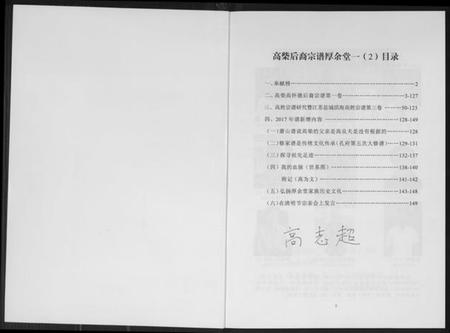 高柴后裔宗谱厚余堂一（2）目录
一、奉献榜……2
二、高柴高怀德后裔宗谱第一卷……3-127
三、高姓宗谱研究暨江苏盐城滨海高姓宗谱第三卷……50-123
四、2017年谱新增内容……128-149
（一）萧山谱说高琼的父亲是高良夫是没有根据的……128
（二）修家谱是传统文化传承(孔府第五次大修谱)……129-131
（三）探寻祖先足迹……132-137
（四）我的血脉（世系图）……138-140
附记（高为文）……141-142
（五）弘扬厚余堂家族历史文化……143-148
（六）在清明节宗亲会上发言……149
高志超